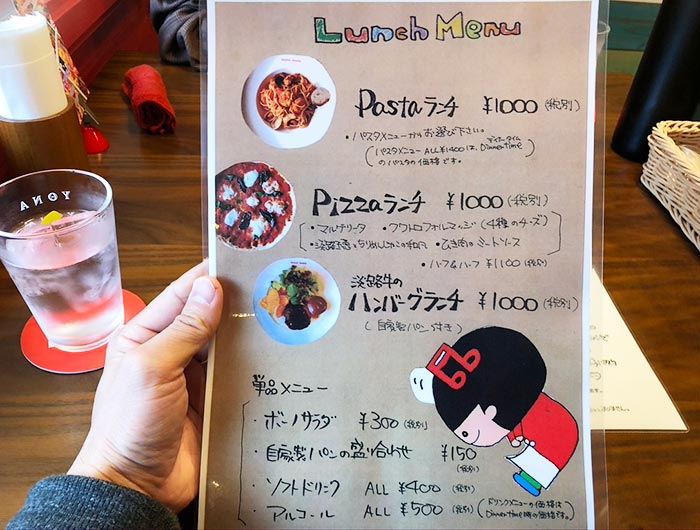 Lunch Menu
Pastaランチ ¥1000(税別)
・パスタメニューからお選び下さい。
(パスタメニュー ALL¥1400は、Dinnertime ディナータイム
のパスタの価格です。)
Pizzaランチ ¥1000(税別)
・マルゲリータ ・クワトロフォルマッジ(4種のチーズ)
・ひき肉のミートソース
・ハーフ&ハーフ ¥1100(税別)
淡路牛の
ハンバーグランチ ¥1000(税別)
(自家製パン付き)
単品メニュー
・ボーノサラダ ¥300(税別)
・自家製パンの盛り合わせ ¥150
(税別)
・ソフトドリンク ALL ¥400(税別)
・アルコール ALL ¥500(税別)
(ドリンクメニューの価格は
Dinnertime時の価格です。)